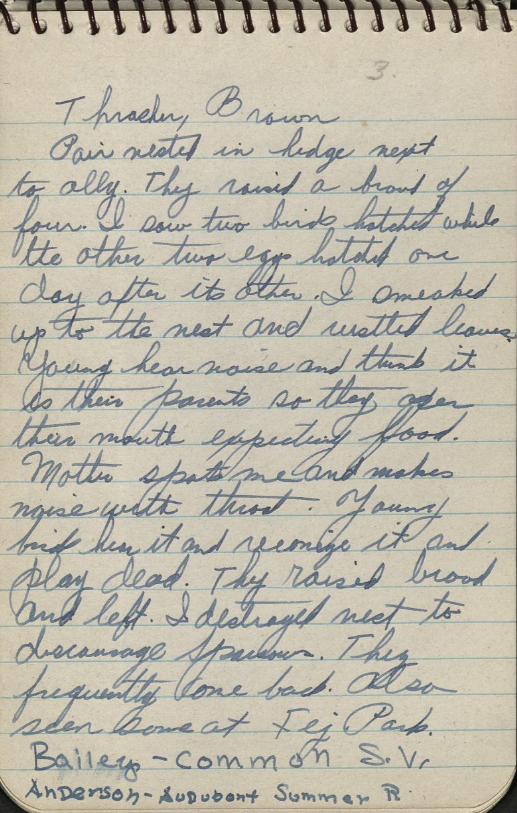 3.
Thrasher, Brown
Pair nested in hedge next
to ally. They raised a brood of
four. I saw two birds hatched while
the other two eggs hatched one
day after its other. I smeaked
up to the nest and rustled leaves.
Young hear noise and think it
is their parents so they open
their mouth expecting flood.
Mother spots me and makes
noise with throat. Young
bird hear it and reconize it and
play dead. They raised brood
and left. I destroyed nest to
discourage Sparrows. They
frequently come back. Also
seen some at Fej Park.
Bailey - Common S.V.
Anderson - Audubont Summer R.